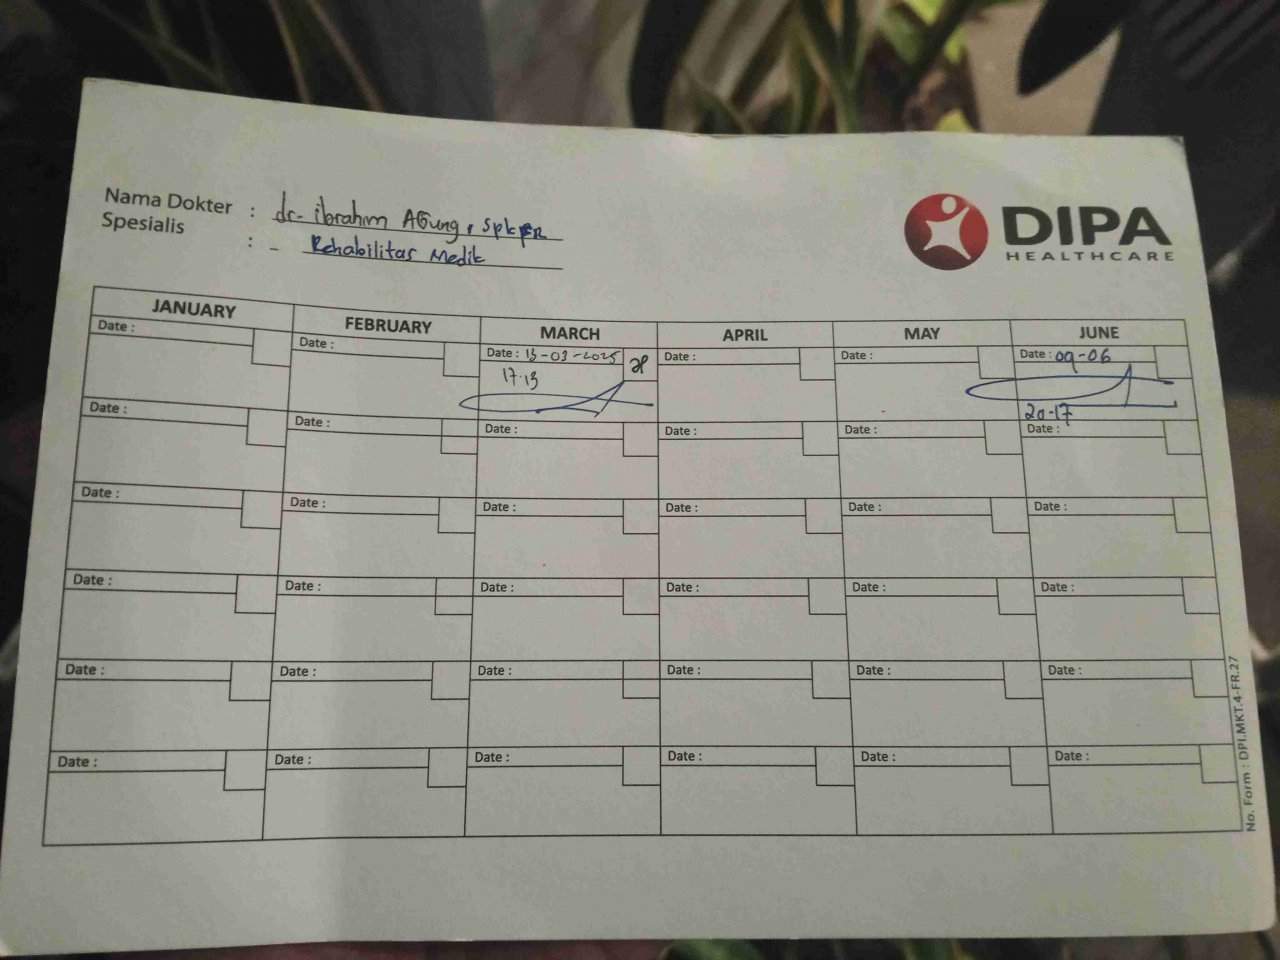 Nama Dokter : dr. ibrahim AGung, SpkFR
Spesialis : - Rehabilitas Medik
DIPA
HEALTHCARE
JANUARY FEBRUARY MARCH APRIL MAY JUNE
Date : Date : Date : 13-03-2025 Date : Date : Date : 09-06
17.13
20-17
Date : Date : Date : Date : Date : Date :
Date : Date : Date : Date : Date : Date :
Date : Date : Date : Date : Date : Date :
Date : Date : Date : Date : Date : Date :
Date : Date : Date : Date : Date : Date :
No. Form : DPI.MKT.4-FR.27